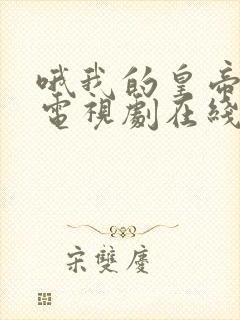 哦我的皇帝
電視劇在綫
宋雙慶